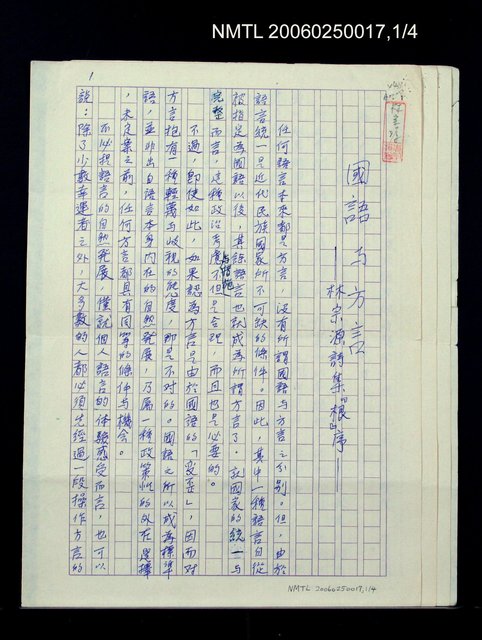 NMTL 20060250017,1/4
1
國語与方言
——林宗源詩集『根』序——
任何語言本來都是方言,沒有所謂國語与方言之分別。但,由於
語言統一是近代民族國家所不可缺的條件。因此,其中一種語言自從
被指定為國語以後,其餘語言也就成為所謂方言了。就國家的統一与
完整而言,這種政治考慮与措施不但是合理,而且也是必要的。
不過,即使如此,如果認為方言是由於國語的「变歪」,因而对
方言抱有一種輕蔑与歧視的態度,那是不对的。國語之所以成為標準
語,並非出自語言本身內在的自然発展,乃属一種政策性的外在選擇
,未反案之前,任何方言都具有同等的條件与機会。
而必把語言的自然発展,僅就個人語言的体験感受而言,也可以
說:除了少數幸運者之外,大多數的人都必須先經過一段操作方言的
NMTL 20060250017,1/4